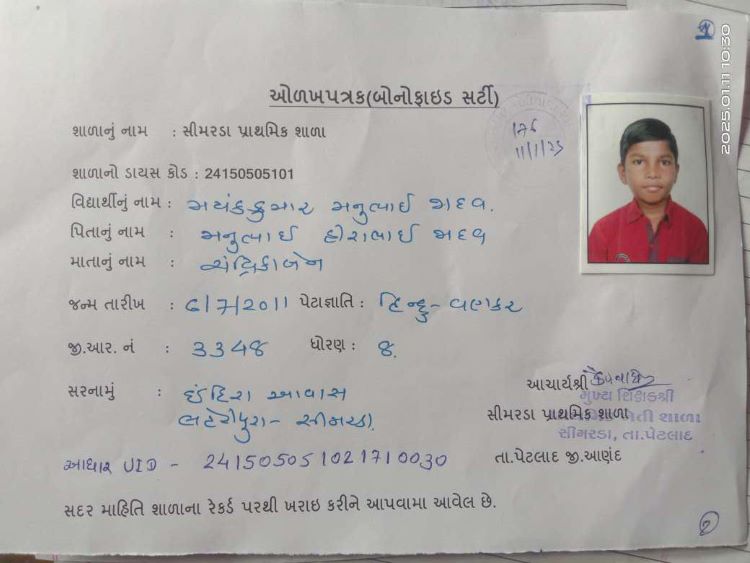 2025.01.11 10:30
ઓળખપત્રક(બોનોફાઇડ સર્ટી)
શાળાનું નામ : સીમરડા પ્રાથમિક શાળા
11/1/25
શાળાનો ડાયસ કોડ : 24150505101
વિદ્યાર્થીનું નામ : મયંકકુમાર મનુભાઈ જાદવ.
પિતાનું નામ : મનુભાઈ હીરાભાઈ જાદવ
માતાનું નામ : ચંદ્રિકાબેન
જન્મ તારીખ : 6/7/2011 પેટાજ્ઞાતિ : હિન્દુ - વણકર
જી.આર. નં : 3348 ધોરણ : 8.
સરનામું : ઈંદિરા આવાસ
લહેરીપુરા - સીમરડા.
આચાર્યશ્રી
મુખ્ય શિક્ષકશ્રી
સીમરડા પ્રાથમિક શાળા
સીમરડા, તા.પેટલાદ
તા.પેટલાદ જી.આણંદ
આધાર UID - 241505051021710030
સદર માહિતિ શાળાના રેકર્ડ પરથી ખરાઇ કરીને આપવામા આવેલ છે.